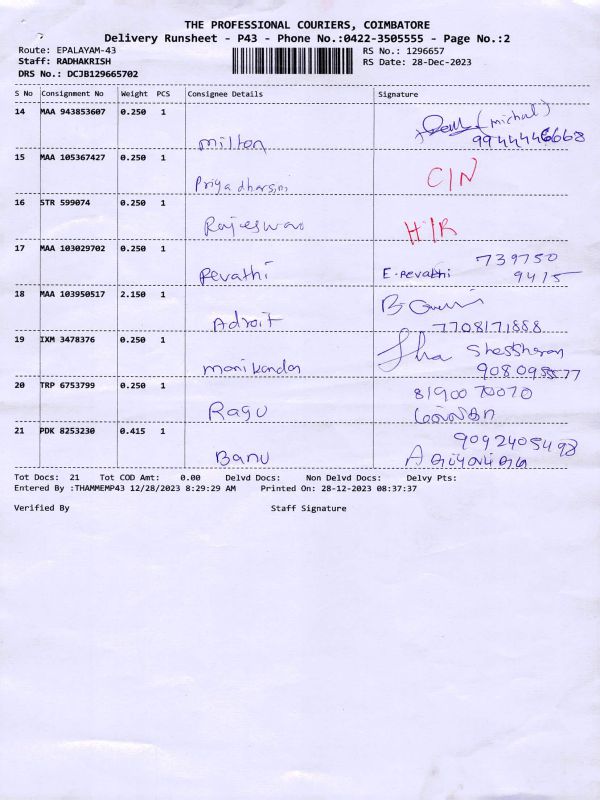 THE PROFESSIONAL COURIERS, COIMBATORE
Delivery Runsheet - P43 - Phone No.:0422-3505555 - Page No.:2
Route: EPALAYAM-43 RS No.: 1296657
Staff: RADHAKRISH RS Date: 28-Dec-2023
DRS No.: DCJB129665702
S No Consignment No Weight PCS Consignee Details Signature
14 MAA 943853607 0.250 1
(michal)
Milton 9944446668
15 MAA 105367427 0.250 1
Priyadharsini C/N
16 STR 599074 0.250 1
Rajeswari H/R
17 MAA 103029702 0.250 1 739750
Revathi E. Revathi 9415
18 MAA 103950517 2.150 1
Adroit 7708171888
19 IXM 3478376 0.250 1
Manikandan
20 TRP 6753799 0.250 1 8190070070
Ragu
21 PDK 8253230 0.415 1 9092405498
Banu
Tot Docs: 21 Tot COD Amt: 0.00 Delvd Docs: Non Delvd Docs: Delvy Pts:
Entered By :THAMMEMP43 12/28/2023 8:29:29 AM Printed On: 28-12-2023 08:37:37
Verified By Staff Signature